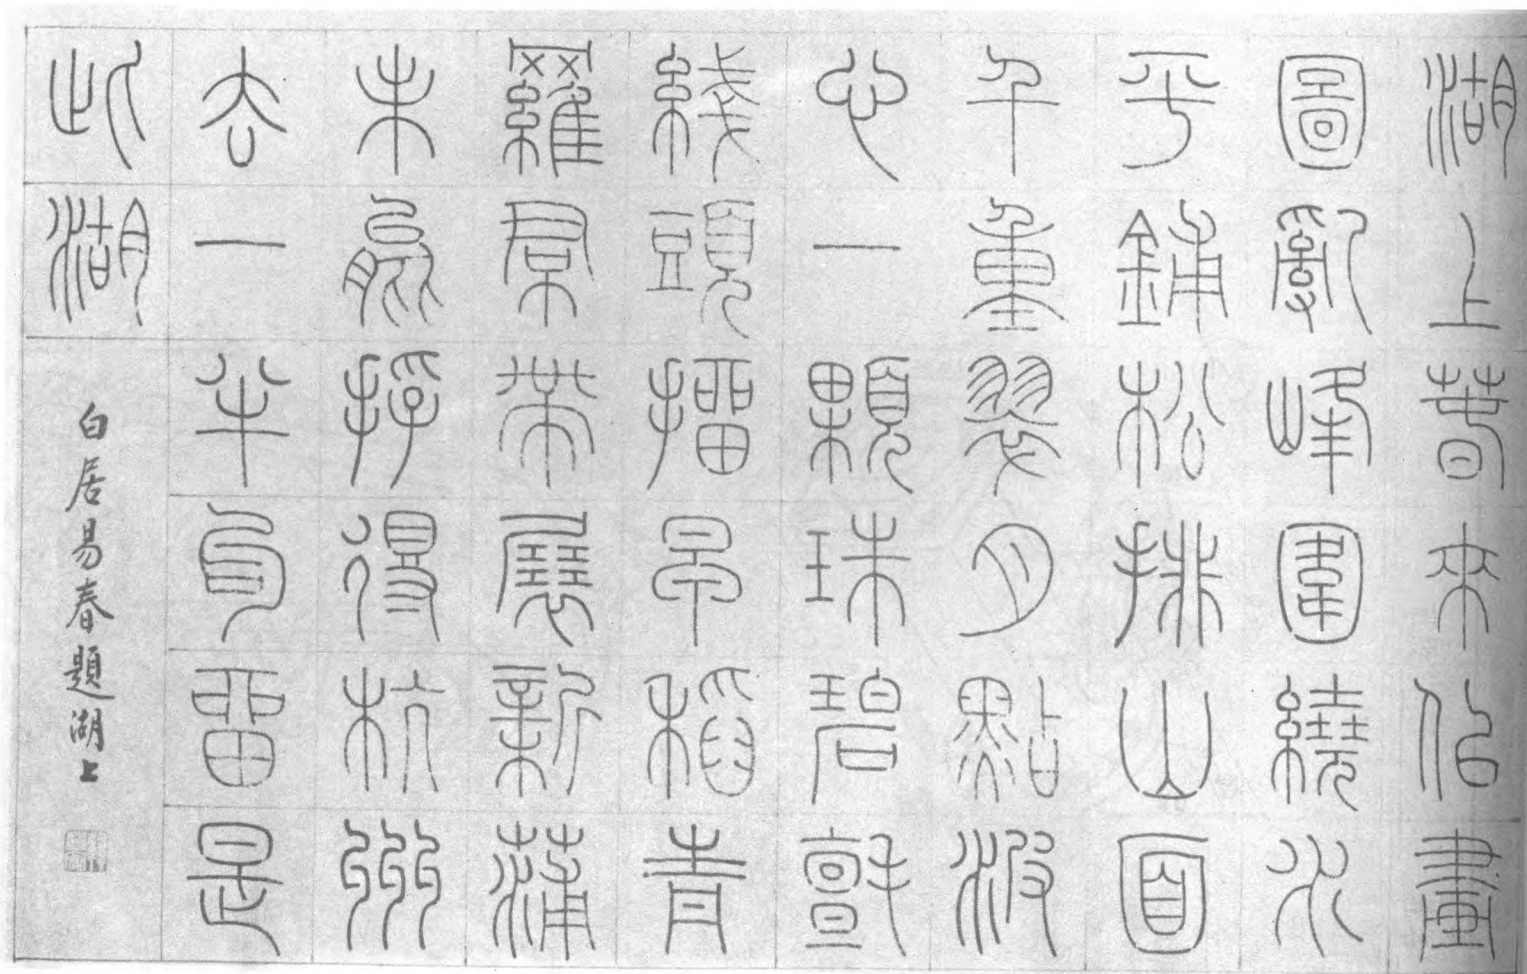 湖上春來佀畫
圖亂峰圍繞水
平鋪松排山面
千重翠月點波
心一顆珠碧氈
綫頭㩅早稻青
羅帬帶展新蒲
未能捊得杭州
去一半句留是
此湖
白居易春題湖上